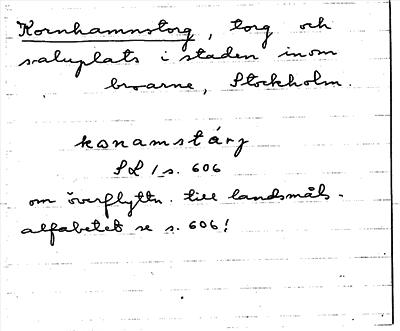 Kornhamnstorg, torg och
saluplats i staden inom
broarne, Stockholm.
konamstárj
SL 1 s. 606
om överflyttn. till landsmåls-
alfabetet se s. 606!